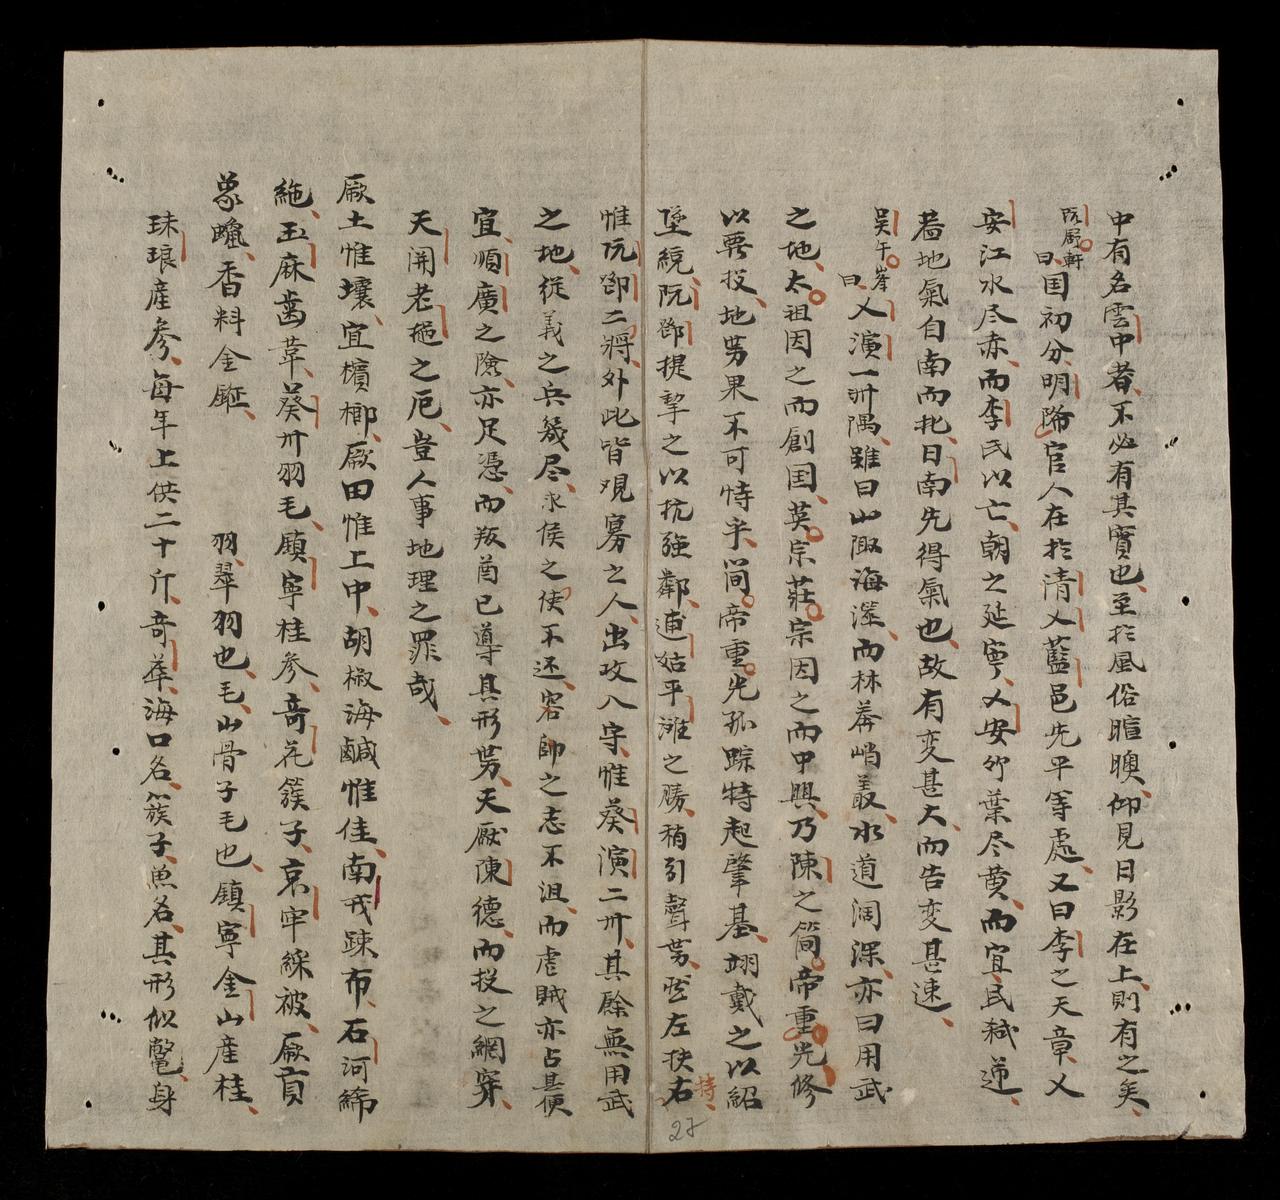 中有名雲中者不必有其實也至於風俗暄暎仰見日影在上則有之矣
阮居軒曰国初分明降官人在於清乂藍邑先平等處又曰李之天章乂
安江水尽赤而李氏以亡朝之延寧乂安竹葉尽黄而宜民弑逆
盖地氣自南而北日南先得氣也故有変甚大而告変甚速
吴午峯曰乂演一州隅雖曰山陬海澨而林莾峭叢水道濶深亦曰用武
之地太祖因之而創国英宗莊宗因之而中興乃陳之簡帝重光修
以要扱地势果不可恃乎簡帝重光孤踪特起肇基翊戴之以紹
墜統阮鄧提挈之以抗強鄰逋姑平灘之勝稍引聲势左扶右持
惟阮鄧二將外此皆覌寡之人出攻入守惟葵演二州其餘無用武
之地從義之兵幾尽永侯之使不还窑帥之志不沮而虐賊亦占其便
宜順廣之險亦足憑而叛酋已導其形势天厭陳德而投之網穽
天開老撾之厄豈人事地理之罪哉
厥土惟壤宜檳榔厥田惟上中胡椒海鹹惟佳南戎踈布石河絺
絁玉麻歯葦葵州羽毛鎮寧桂参竒花簇子哀牢綵被厥貢
象蠟香料金鉦 羽翠羽也毛山骨子毛也鎮寧金山産桂
珠琅産参每年上供二十斤竒華海口名簇子魚名其形似鼈身
27